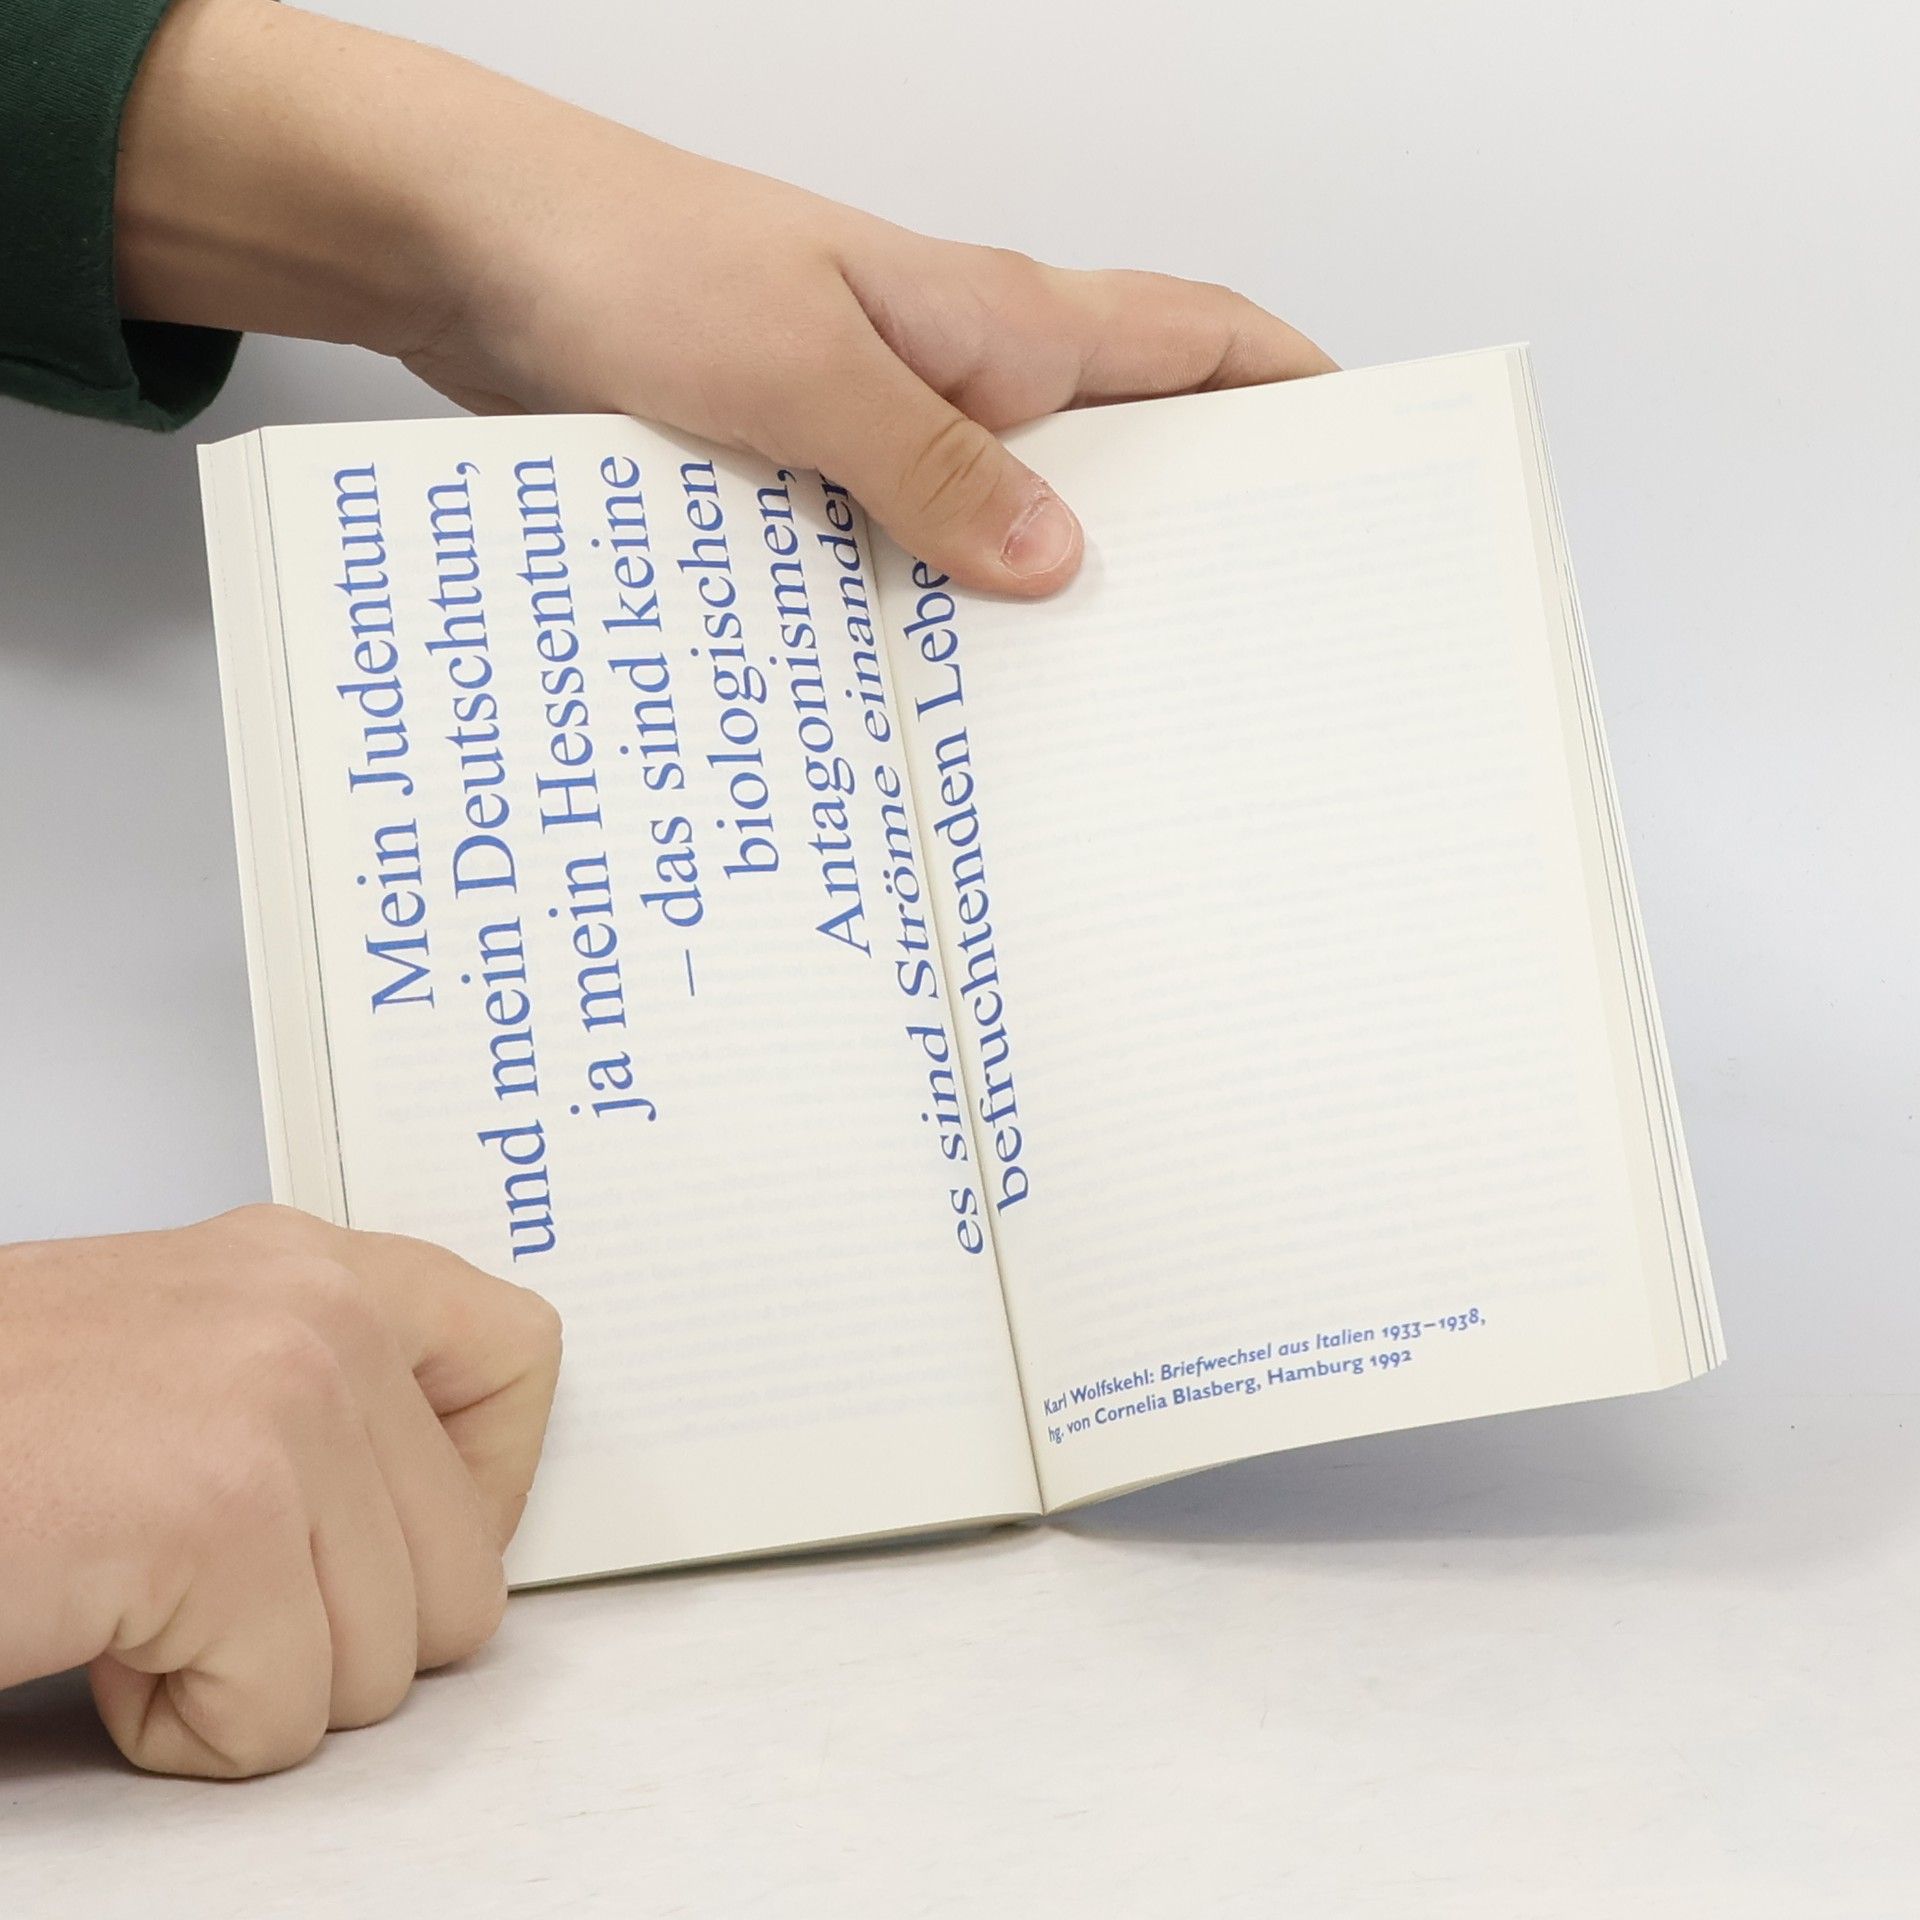 Mein Judentum
und mein Deutschtum,
ja mein Hessentum
– das sind keine
biologischen
Antagonismen,
es sind Ströme einander
befruchtenden
Karl Wolfskehl: Briefwechsel aus Italien 1933–1938,
hg. von Cornelia Blasberg, Hamburg 1992